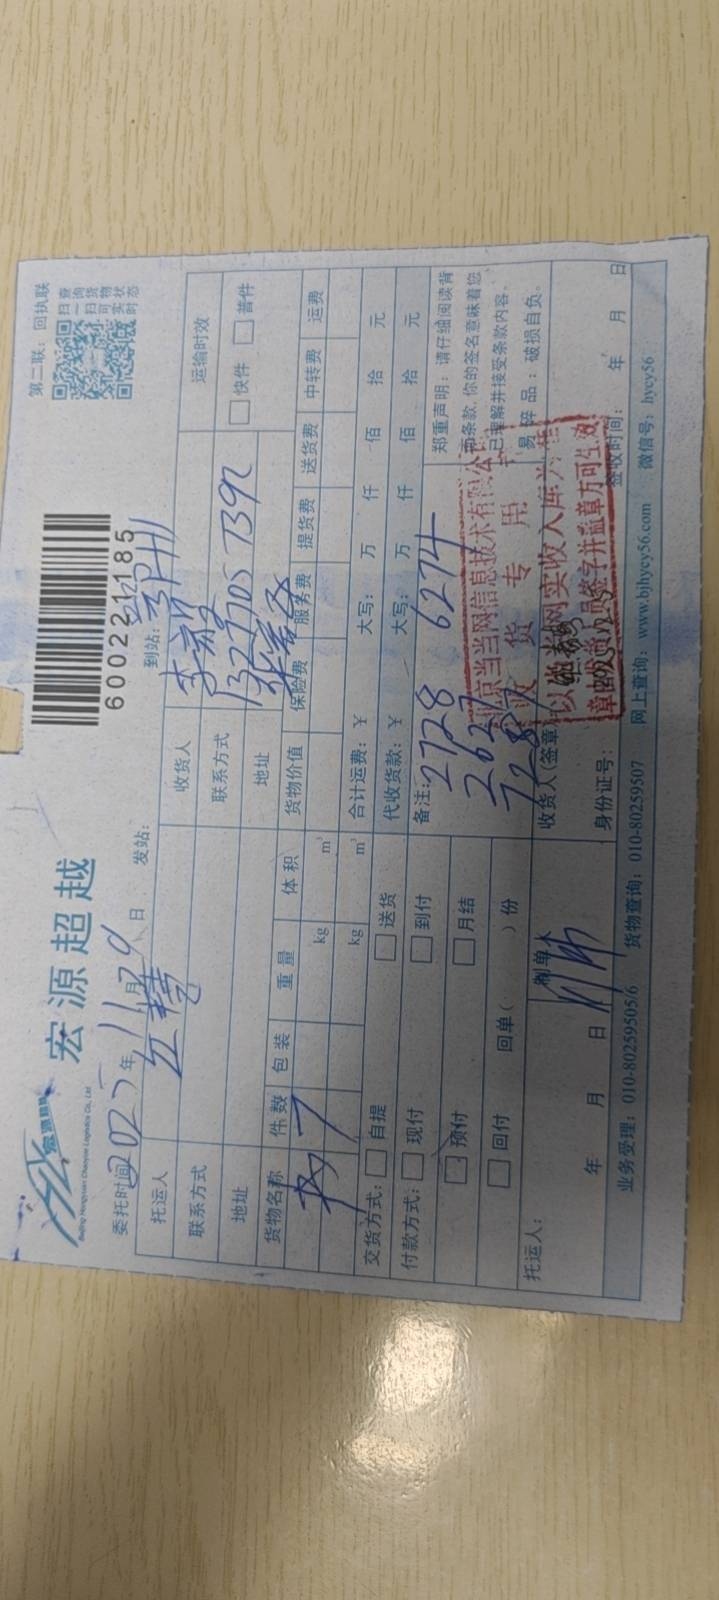 第二联：回执联
扫一扫
查货物
询可实
货物状
时态
宏源超越
宏源超越
Beijing Hongyuan Chaoyue Logistics Co., Ltd
600221185
委托时间 2025 年 11 月 29 日 发站： 到站：
托运人
收货人
运输时效
联系方式
联系方式 1327705 7392
快件 普件
地址
地址
货物名称 件数 包装 重量 体积 货物价值 保险费 服务费 提货费 送货费 中转费 运费
书 7 kg m³
kg m³ 合计运费：¥ 大写： 万 仟 佰 拾 元
交货方式： 自提 送货 代收货款：¥ 大写： 万 仟 佰 拾 元
付款方式： 现付 到付 备注： 2728 6274
预付 月结 2627
回付 回单（ ）份 7287
郑重声明：请仔细阅读背
面条款，你的签名意味着您
已理解并接受条款内容。
易碎品：破损自负。
北京当当网信息技术有限公司
收货专用
托运人： 制单人 收货人(签章)
年 月 日 身份证号： 签收时间： 年 月 日
业务受理：010-80259505/6 货物查询：010-80259507 网上查询：www.bjhycy56.com 微信号：hycy56